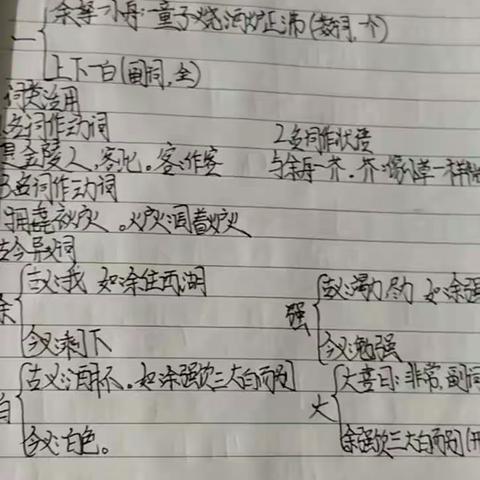 余挐一小舟:童子烧酒炉正沸(数词,一个)
一
上下一白(副词,全)
词类活用
名词作动词
2.名词作状语
是金陵人,客此。客:作客
与余舟一芥。芥:像小草一样
3.名词作动词
拥毳衣炉火。炉火:围着炉火
古今异义词
古义:我 如余住西湖
余
今义:剩下
古义:竭力 尽力 如余强
强
今义:勉强
古义:酒杯。如余强饮三大白而别
白
今义:白色。
大喜曰:非常,副词
大
余强饮三大白而别